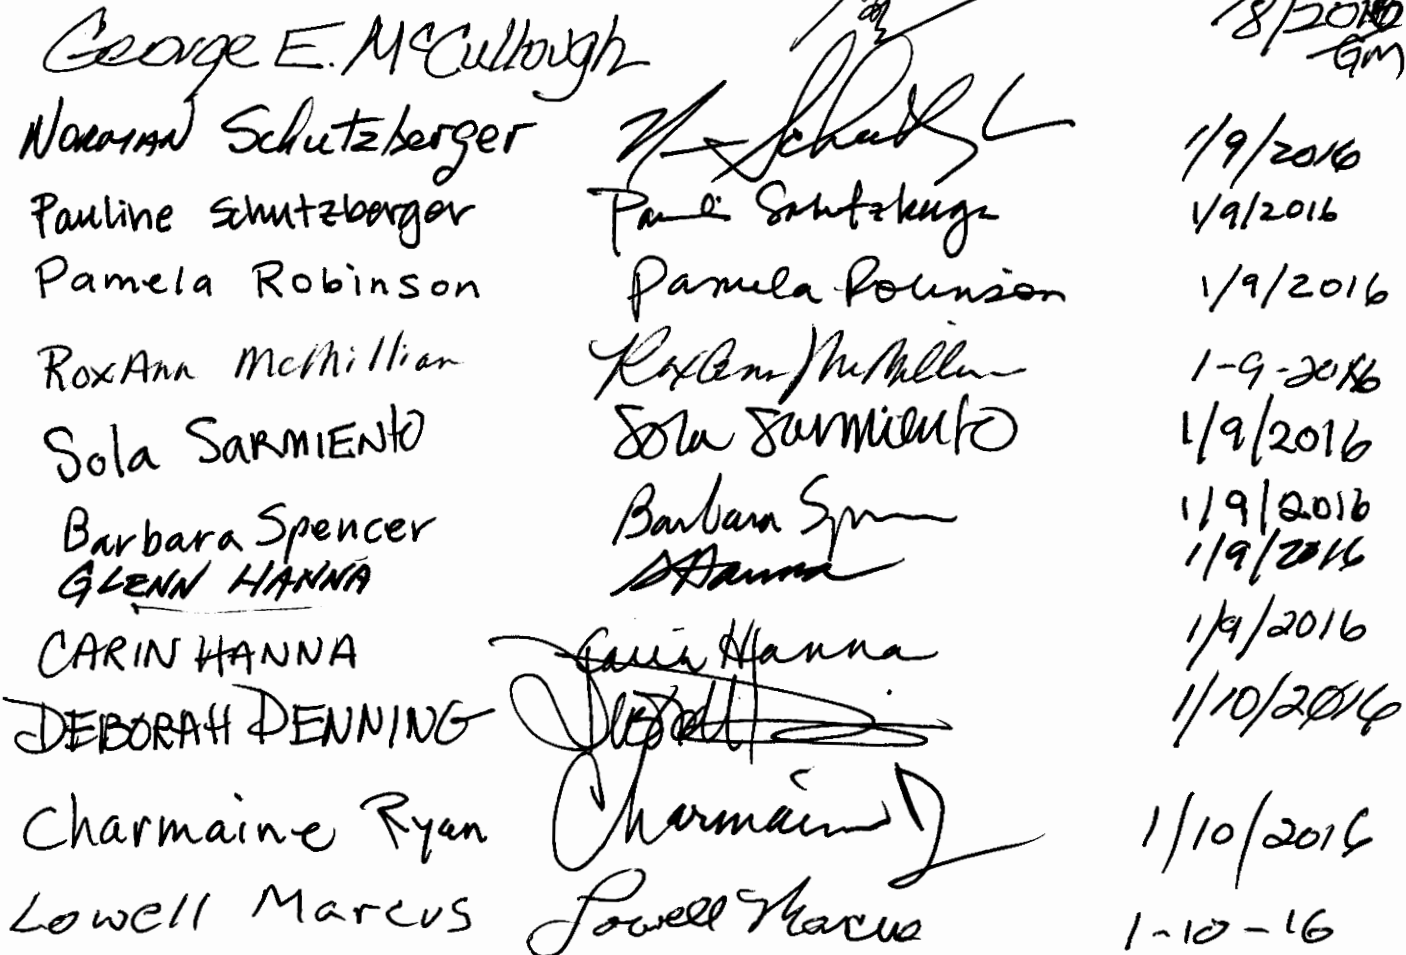 George E. McCullough /8/2016
GM
NORMAN Schutzberger N Schutzberger 1/9/2016
Pauline Schutzberger Pauline Schutzberger 1/9/2016
Pamela Robinson Pamela Robinson 1/9/2016
RoxAnn McMillian RoxAnn McMillian 1-9-2016
Sola SARMIENTO Sola Sarmiento 1/9/2016
Barbara Spencer Barbara Spencer 1/9/2016
GLENN HANNA Hanna 1/9/2016
CARIN HANNA Carin Hanna 1/9/2016
DEBORAH DENNING 1/10/2016
Charmaine Ryan Charmaine 1/10/2016
Lowell Marcus Lowell Marcus 1-10-16